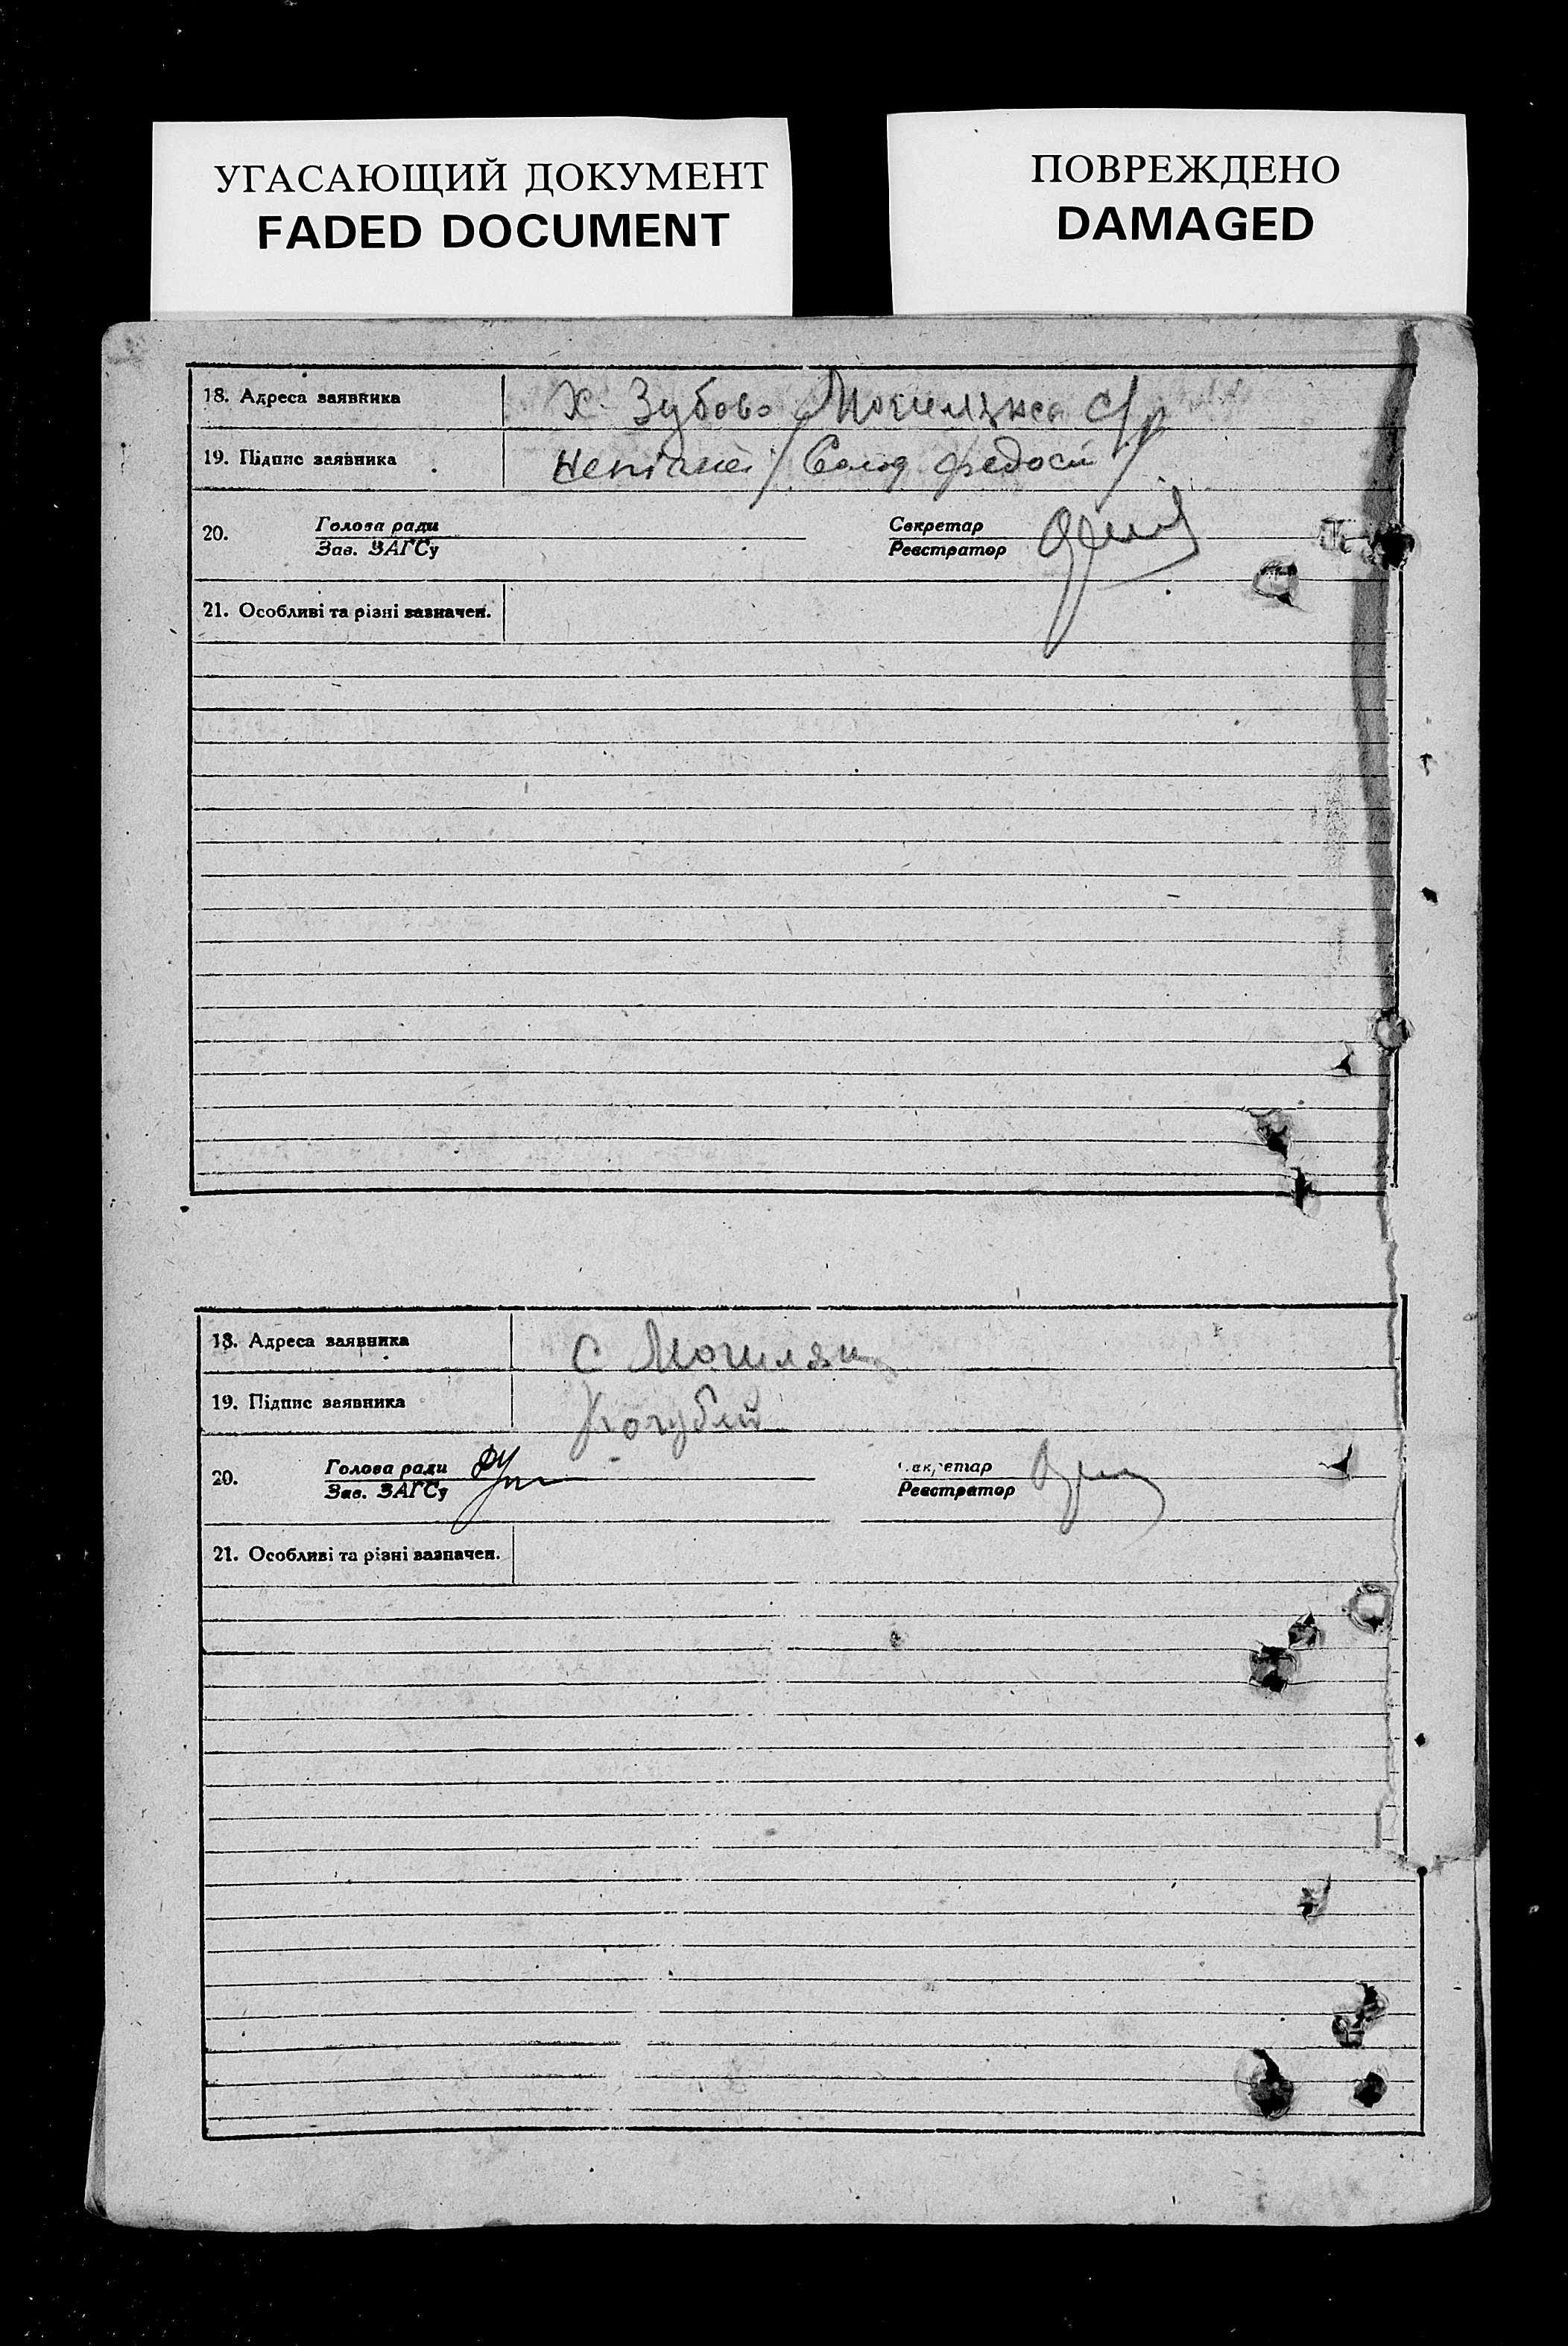 УГАСАЮЩИЙ ДОКУМЕНТ
FADED DOCUMENT
ПОВРЕЖДЕНО
DAMAGED
18. Адреса заявника Х. Зубово с/р
19. Підпис заявника
20. Голова ради
Зав. ЗАГСу
Секретар
Реєстратор
21. Особливі та різні зазначен.
18. Адреса заявника с Могиляни
19. Підпис заявника Кочубей
20. Голова ради
Зав. ЗАГСу
Секретар
Реєстратор
21. Особливі та різні зазначен.